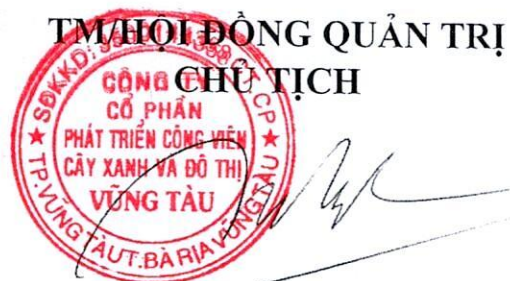 TM/HỘI ĐỒNG QUẢN TRỊ
CHỦ TỊCH
CÔNG TY
CỔ PHẦN
PHÁT TRIỂN CÔNG VIÊN
CÂY XANH VÀ ĐÔ THỊ
VŨNG TÀU
TP.VŨNG TÀU T.BÀ RỊA VŨNG TÀU